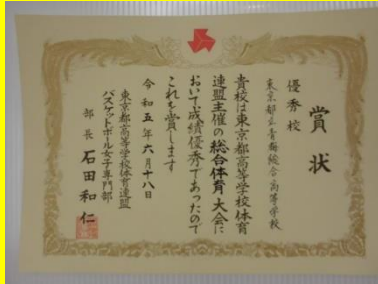 賞状
優秀校
東京都立青梅総合高等学校
貴校は東京都高等学校体育
連盟主催の総合体育大会に
おいて成績優秀であったので
これを賞します
令和五年六月十八日
東京都高等学校体育連盟
バスケットボール女子専門部
部長 石田和仁